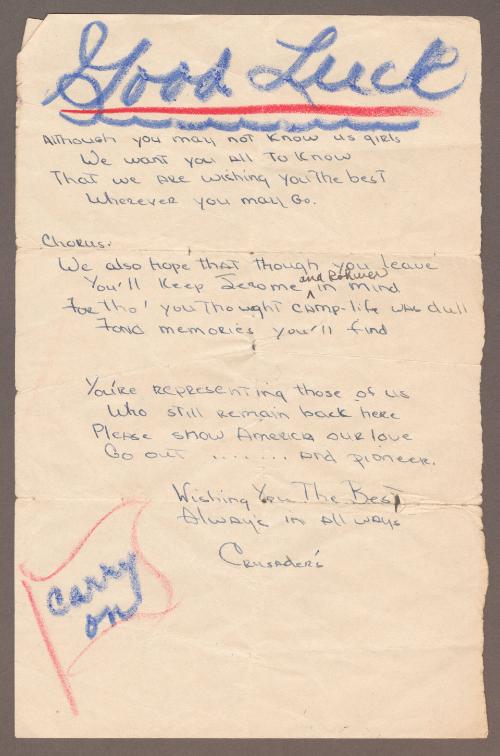 Good Luck
Although you may not know us girls
We want you all to know
That we are wishing you the best
Wherever you may go.
Chorus:
We also hope that though you leave
You'll keep Jerome and Rohwer in mind
For tho' you thought camp-life was dull
Fond memories you'll find
You're representing those of us
Who still remain back here
Please show America our love
Go out ........ and pioneer.
Wishing You The Best
Always in all ways
Crusaders
carry
on